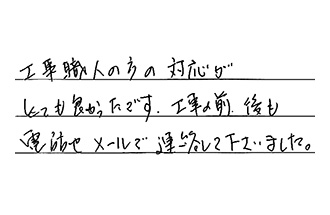 工事職人の方の対応が
とても良かったです。工事の前、後も
電話やメールで連絡して下さいました。